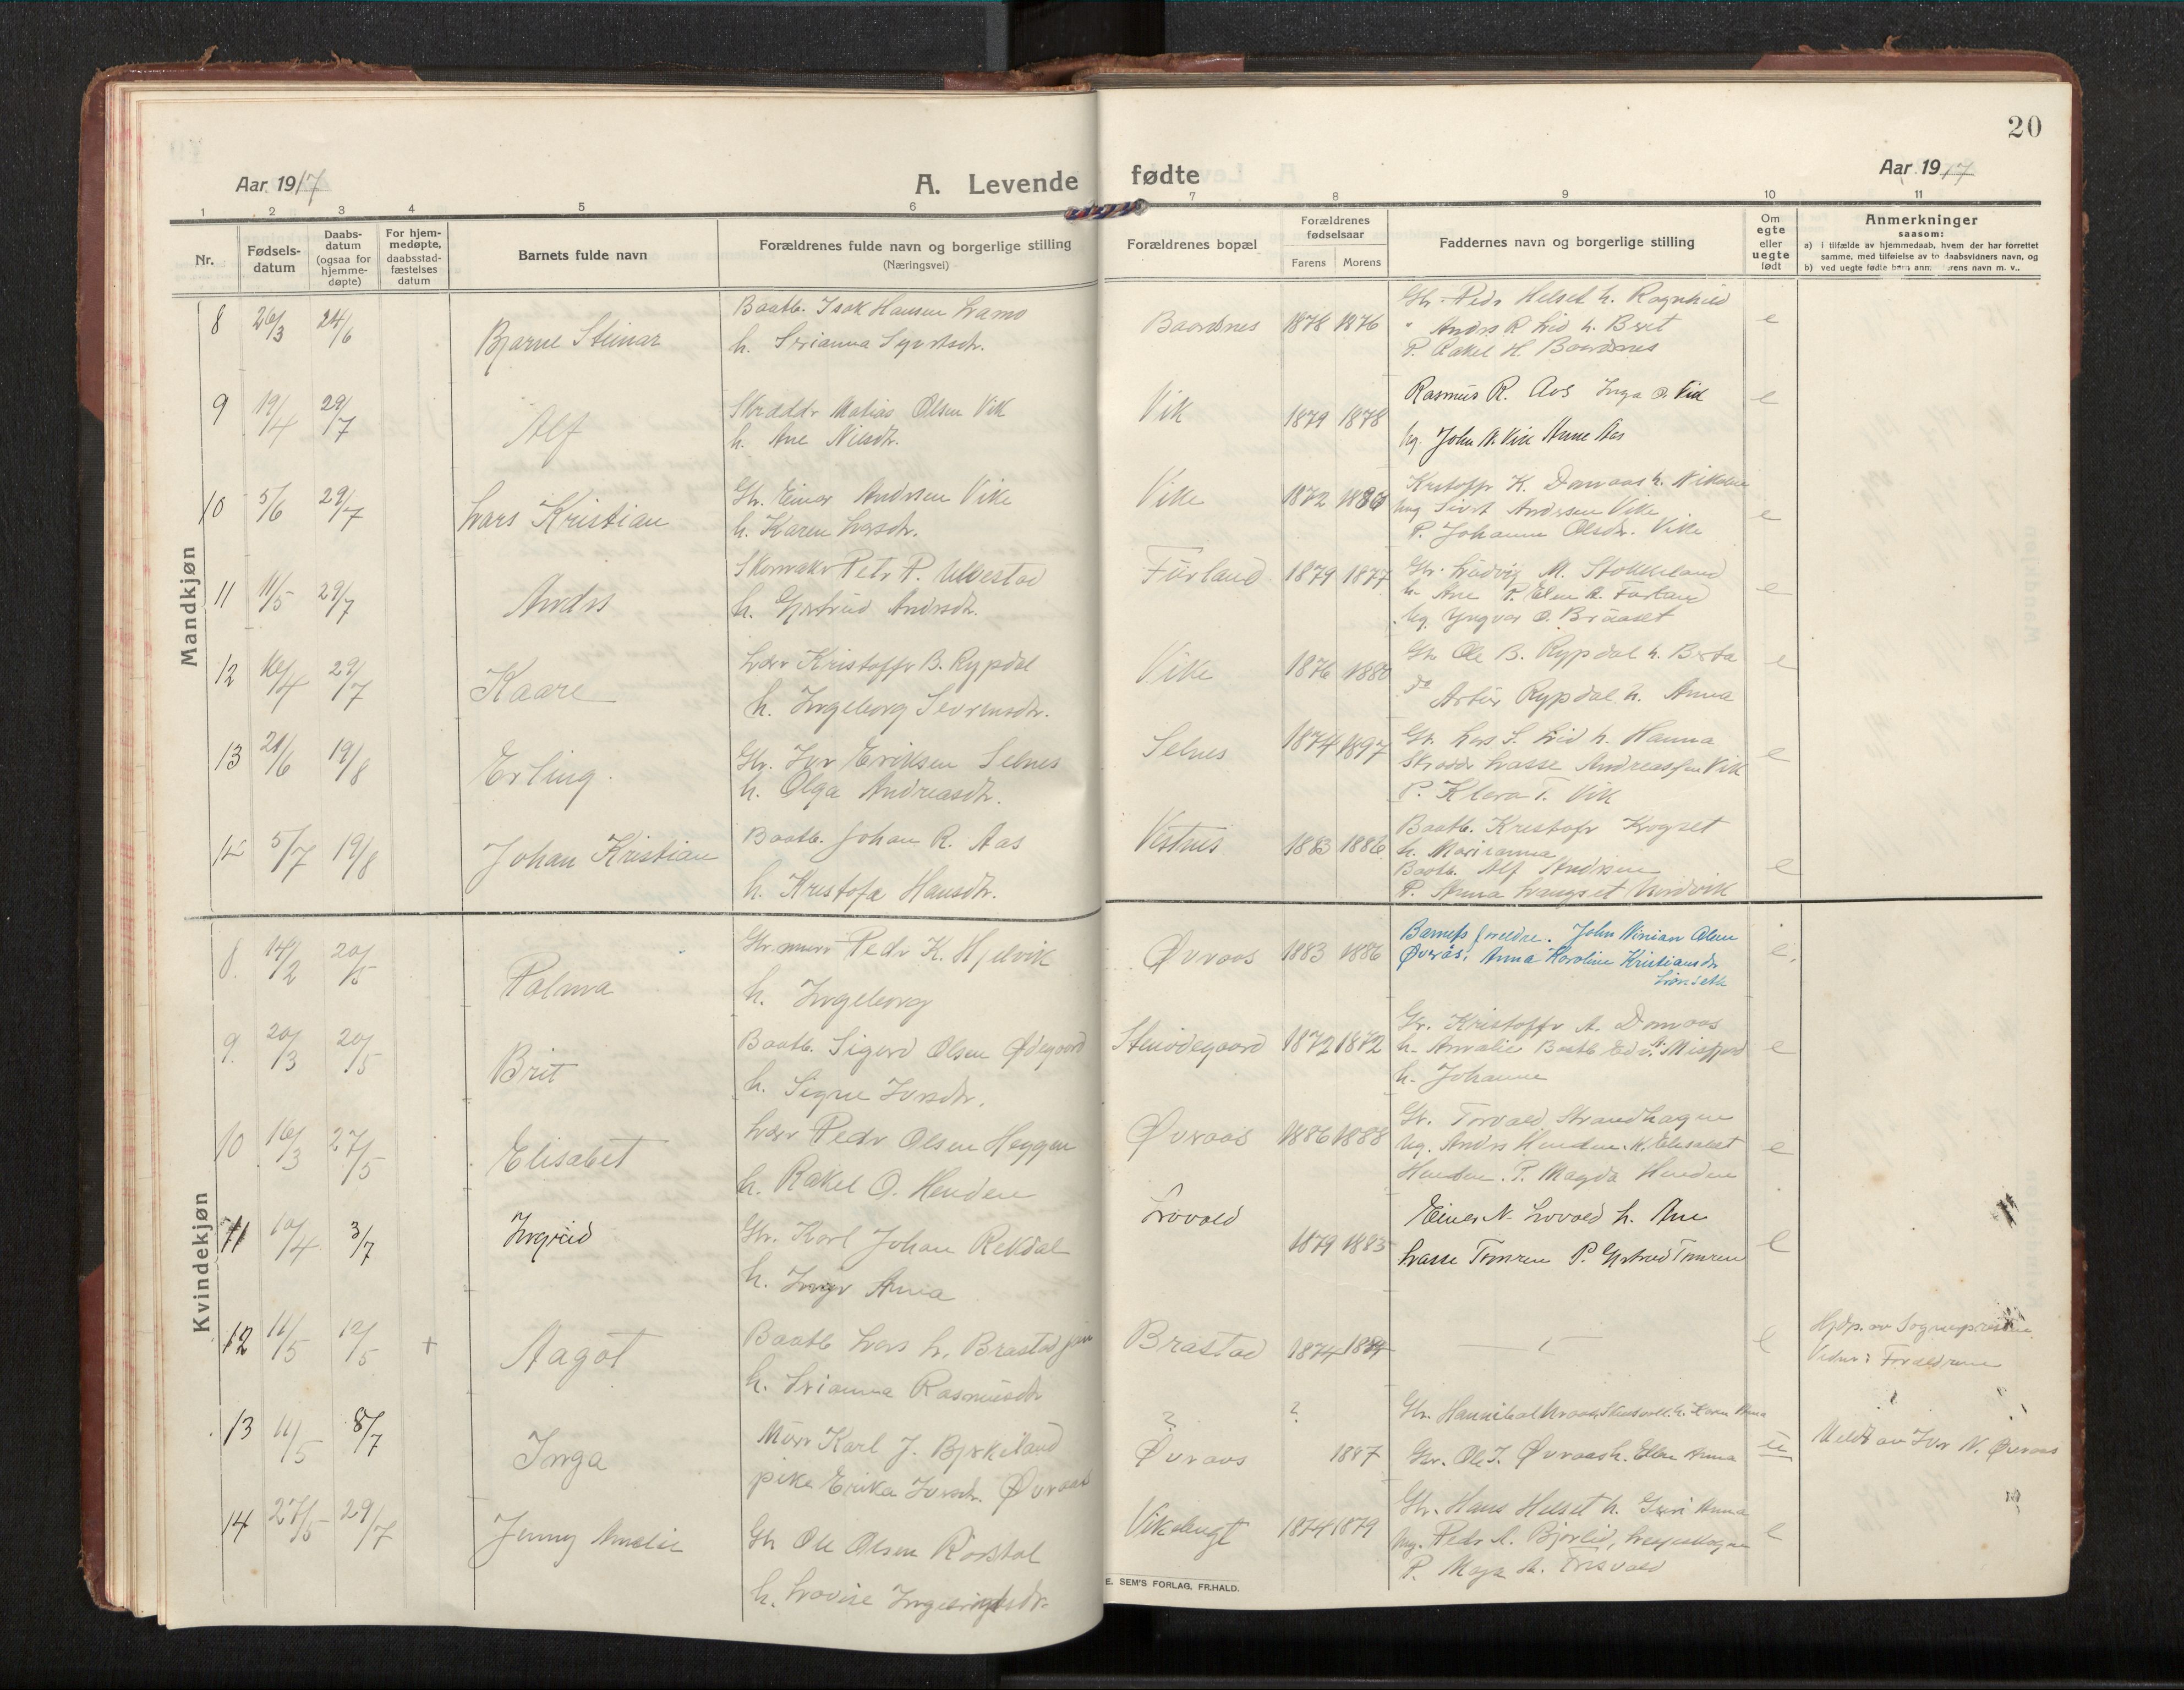 20
Aar 1917
A. Levende fødte
Aar 1917
1 2 3 4 5 6 7 8 9 10 11
Nr.
Fødsels-
datum
Daabs-
datum
(ogsaa for
hjemme-
døpte)
For hjem-
medøpte,
daabsstad-
fæstelses
datum
Barnets fulde navn
Forældrenes fulde navn og borgerlige stilling
(Næringsvei)
Forældrenes bopæl
Forældrenes
fødselsaar
Farens Morens
Faddernes navn og borgerlige stilling
Om
egte
eller
uegte
født
Anmerkninger
saasom:
a) i tilfælde av hjemmedaab, hvem der har forrettet
samme, med tilføielse av to daabsvidners navn, og
b) ved uegte fødte barn anm
Mandkjøn
8 26/3 24/6 Bjarne Steinar
Baatb. Isak Hansen
h. Serianna
Baardsnes 1878 1876
Gbr. Peder Helset h. Ragnhild
h. Berit
P. Rakel H. Baardsnes
e
9 19/4 29/7 Alf
Skrædder Matias Olsen Vik
h. Ane Nilsdtr.
Vik 1879 1878
Rasmus R. Aas Inga Vik
Ug. John N. Vik Anne Aas
e
10 5/6 29/7 Lars Kristian
Gbr. Einar Andersen Vike
h. Karen Larsdtr.
Vike 1872
Kristoffer K.
Ung Sivert Andersen Vike
P. Johanne Olsdtr. Vike
e
11 11/5 29/7 Anders
Skomaker Peter P. Ulvestad
h. Gjertrud Andersdtr.
Furland 1879 1877
Gbr. Ludvig M. Stokkeland
h. Ane P. Elen A. Furland
Ug. Yngvar O. Braaset
e
12 16/4 29/7 Kaare
Lærer Kristoffer B. Rypdal
h. Ingeborg Severinsdtr.
Vike 1876 1880
Gbr Ole B. Rypdal h. Berta
do Artur Rypdal h. Anna
e
13 21/6 19/8 Erling.
Gbr. Iver Eriksen Selnes
h. Olga Andreasdtr.
Selnes 1874 1897
Gbr. Lars S. Lid h. Hanna
Skrædder Lasse Andreassen Vik
P. Klara T. Vik
e
14 5/7 19/8 Johan Kristian
Baatb. Johan R. Aas
h. Kristofa Hansdtr.
Vestnes 1883 1886
Baatb. Kristofer Krogset
h. Marianna
Baatb. Alf Andersen
P. Anna Langset
e
Kvindekjøn
8. 14/2 20/5 Palma
Gbr. murer Peder K. Hjelvik
h. Ingeborg
Øveraas 1883 1886
Barnets foreldre. John Ninian Olsen
Øverås. Anna Karoline Kristiansdtr
e.
9. 20/3 20/5 Brit
Baatb. Sigurd Olsen Ødegaard
h. Signe Iversdtr.
Stenødegaard 1872 1872
Gbr. Kristoffer A.
h. Amalie Baatb. Misfjord
h. Johanne
e
10 16/3 27/5 Elisabet
Lærer Peder Olsen Heggen
h. Rakel O. Henden
Øveraas 1886 1888
Gbr. Torvald Strandhagen
Ug. Anders Henden. K. Elisabet
Henden. P. Magda Henden
e
11 10/4 3/7 Ingrid
Gbr. Karl Johan Rekdal
h. Inger Anna
Lovold 1879 1883
Einar N. Lovold h. Ane
Lasse Tomren P. Gjertrud Tomren
e
12 11/5 12/5 + Aagot
Baatb Lars L. Brastad jun
h. Serianna Rasmusdtr
Brastad 1874 1884
e
Hjdp. av Sognepresten.
Vidner: Forældrene
13 11/5 8/7 Inga
Murer Karl J. Bjerkeland
pike Erika Iversdtr. Øveraas
?
Øveraas ? 1887
Gbr. Hannibal h. Karen Anna
Gbr. Ole I. Øveraas h. Ellen Anna
u
Meldt av Iver N. Øveraas
14 27/5 29/7 Jenny Amalie
Gbr Ole Olsen Rørstol
h. Lovise
Vikebugt 1874 1879
Gbr. Hans Helset h. Guri Anna
Ung. Peder A. Bjorlid,
P. Maja A.
e
E. SEM'S FORLAG, FR.HALD.